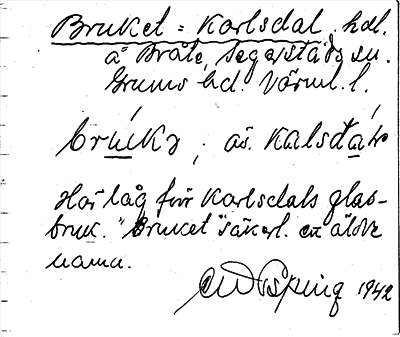 Bruket = Karlsdal, hdl.
å Bråte, Segerstads sn.
Grums hd. Värml. l.
brúkə, äs. kalsdá
Här låg förr Karlsdals glas-
bruk. "Bruket" säkerl. ett äldre
namn.
1942